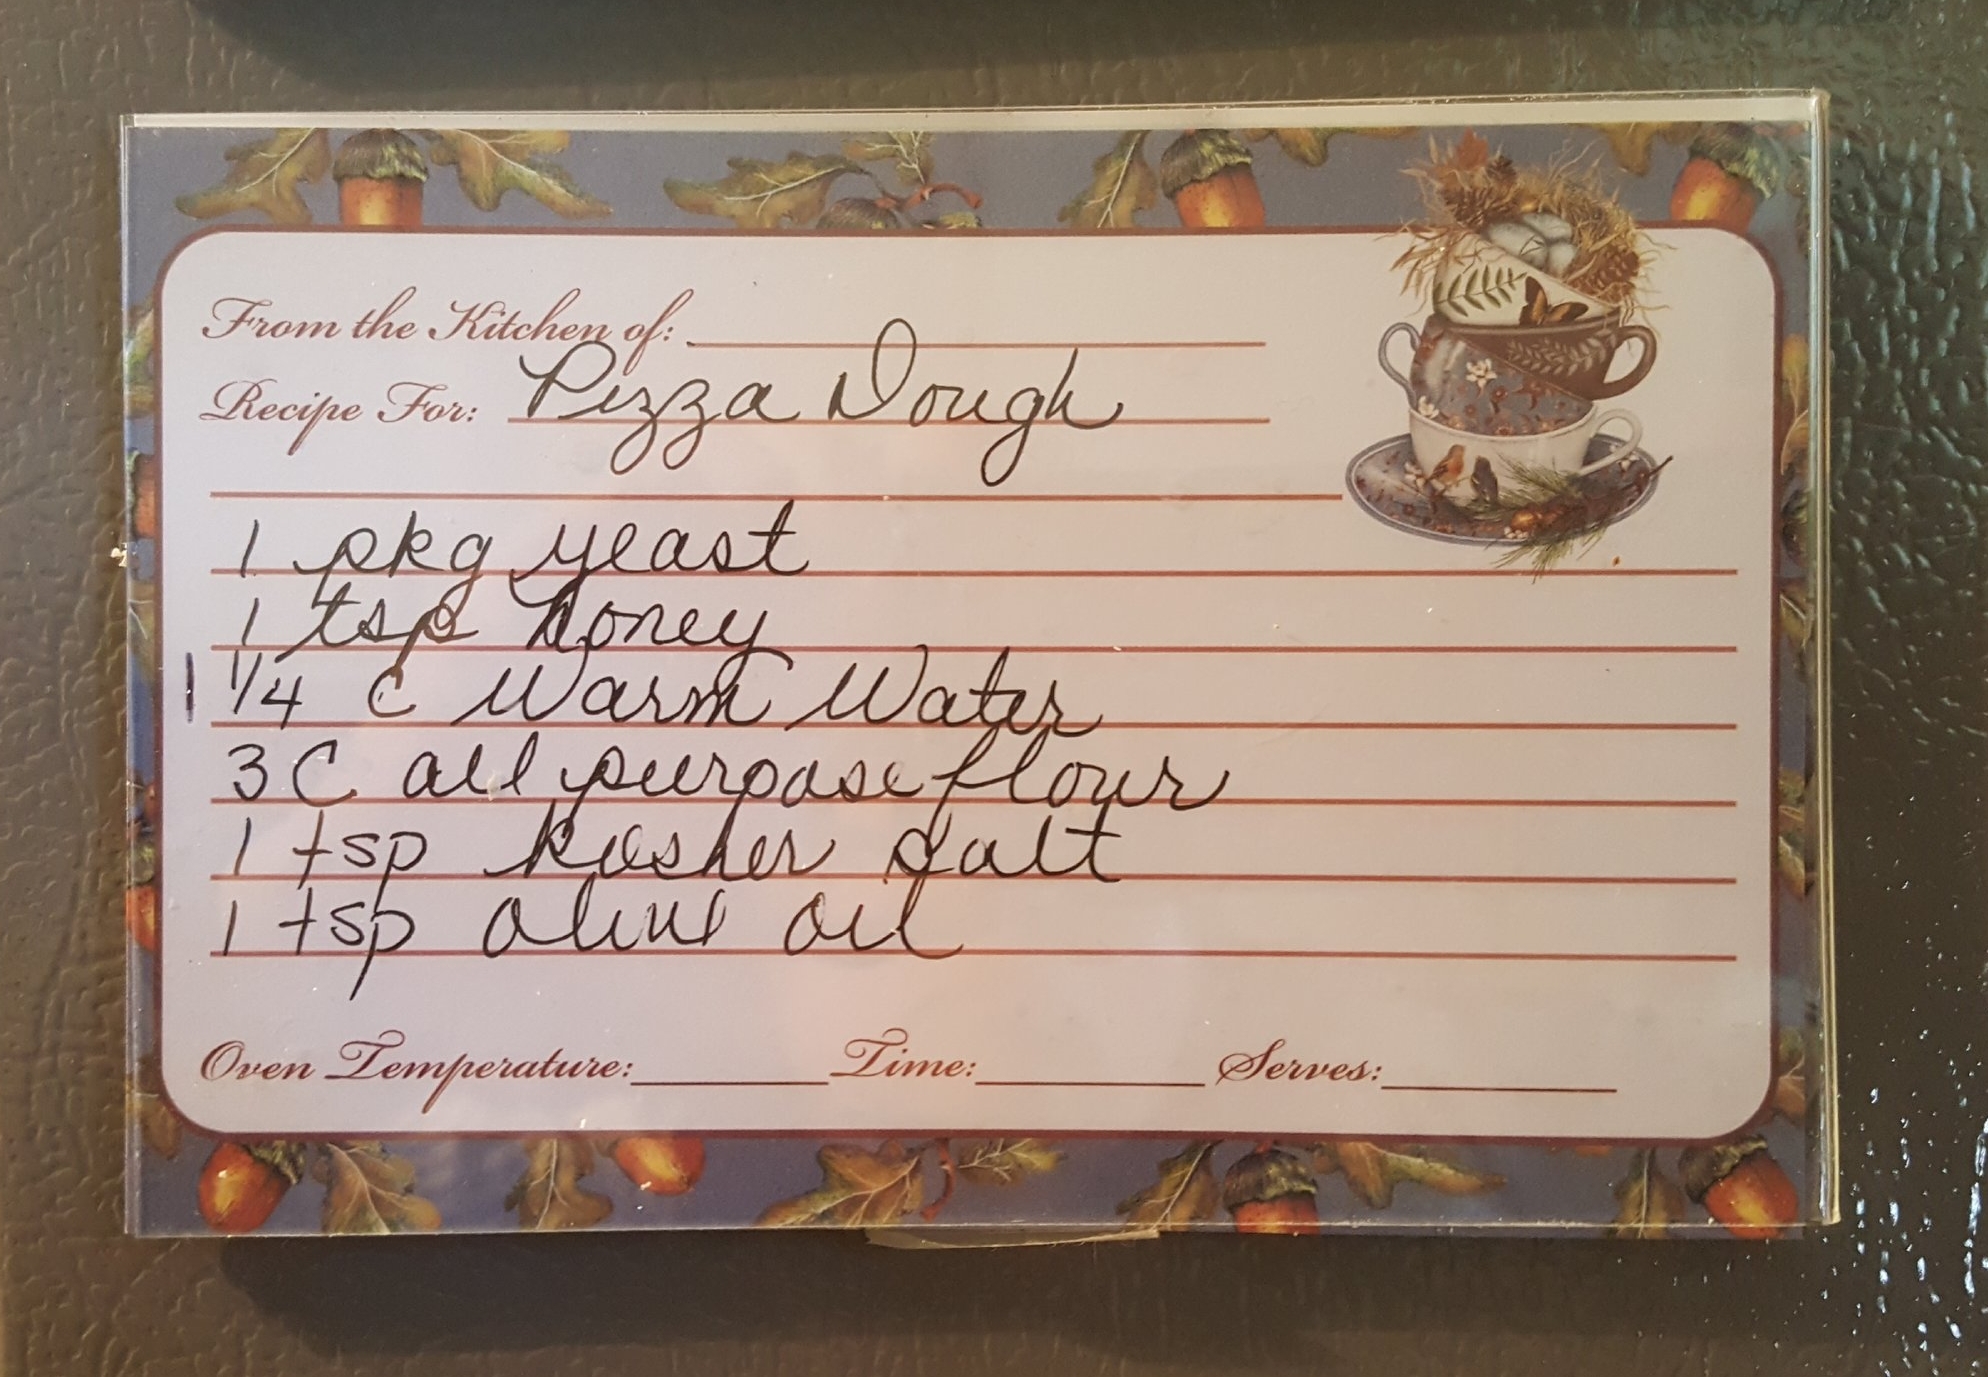 From the Kitchen of:
Recipe For: Pizza Dough
1 pkg yeast
1 tsp honey
1 1/4 c Warm Water
3 C all purpose flour
1 tsp kosher salt
1 tsp olive oil
Oven Temperature: Time: Serves: